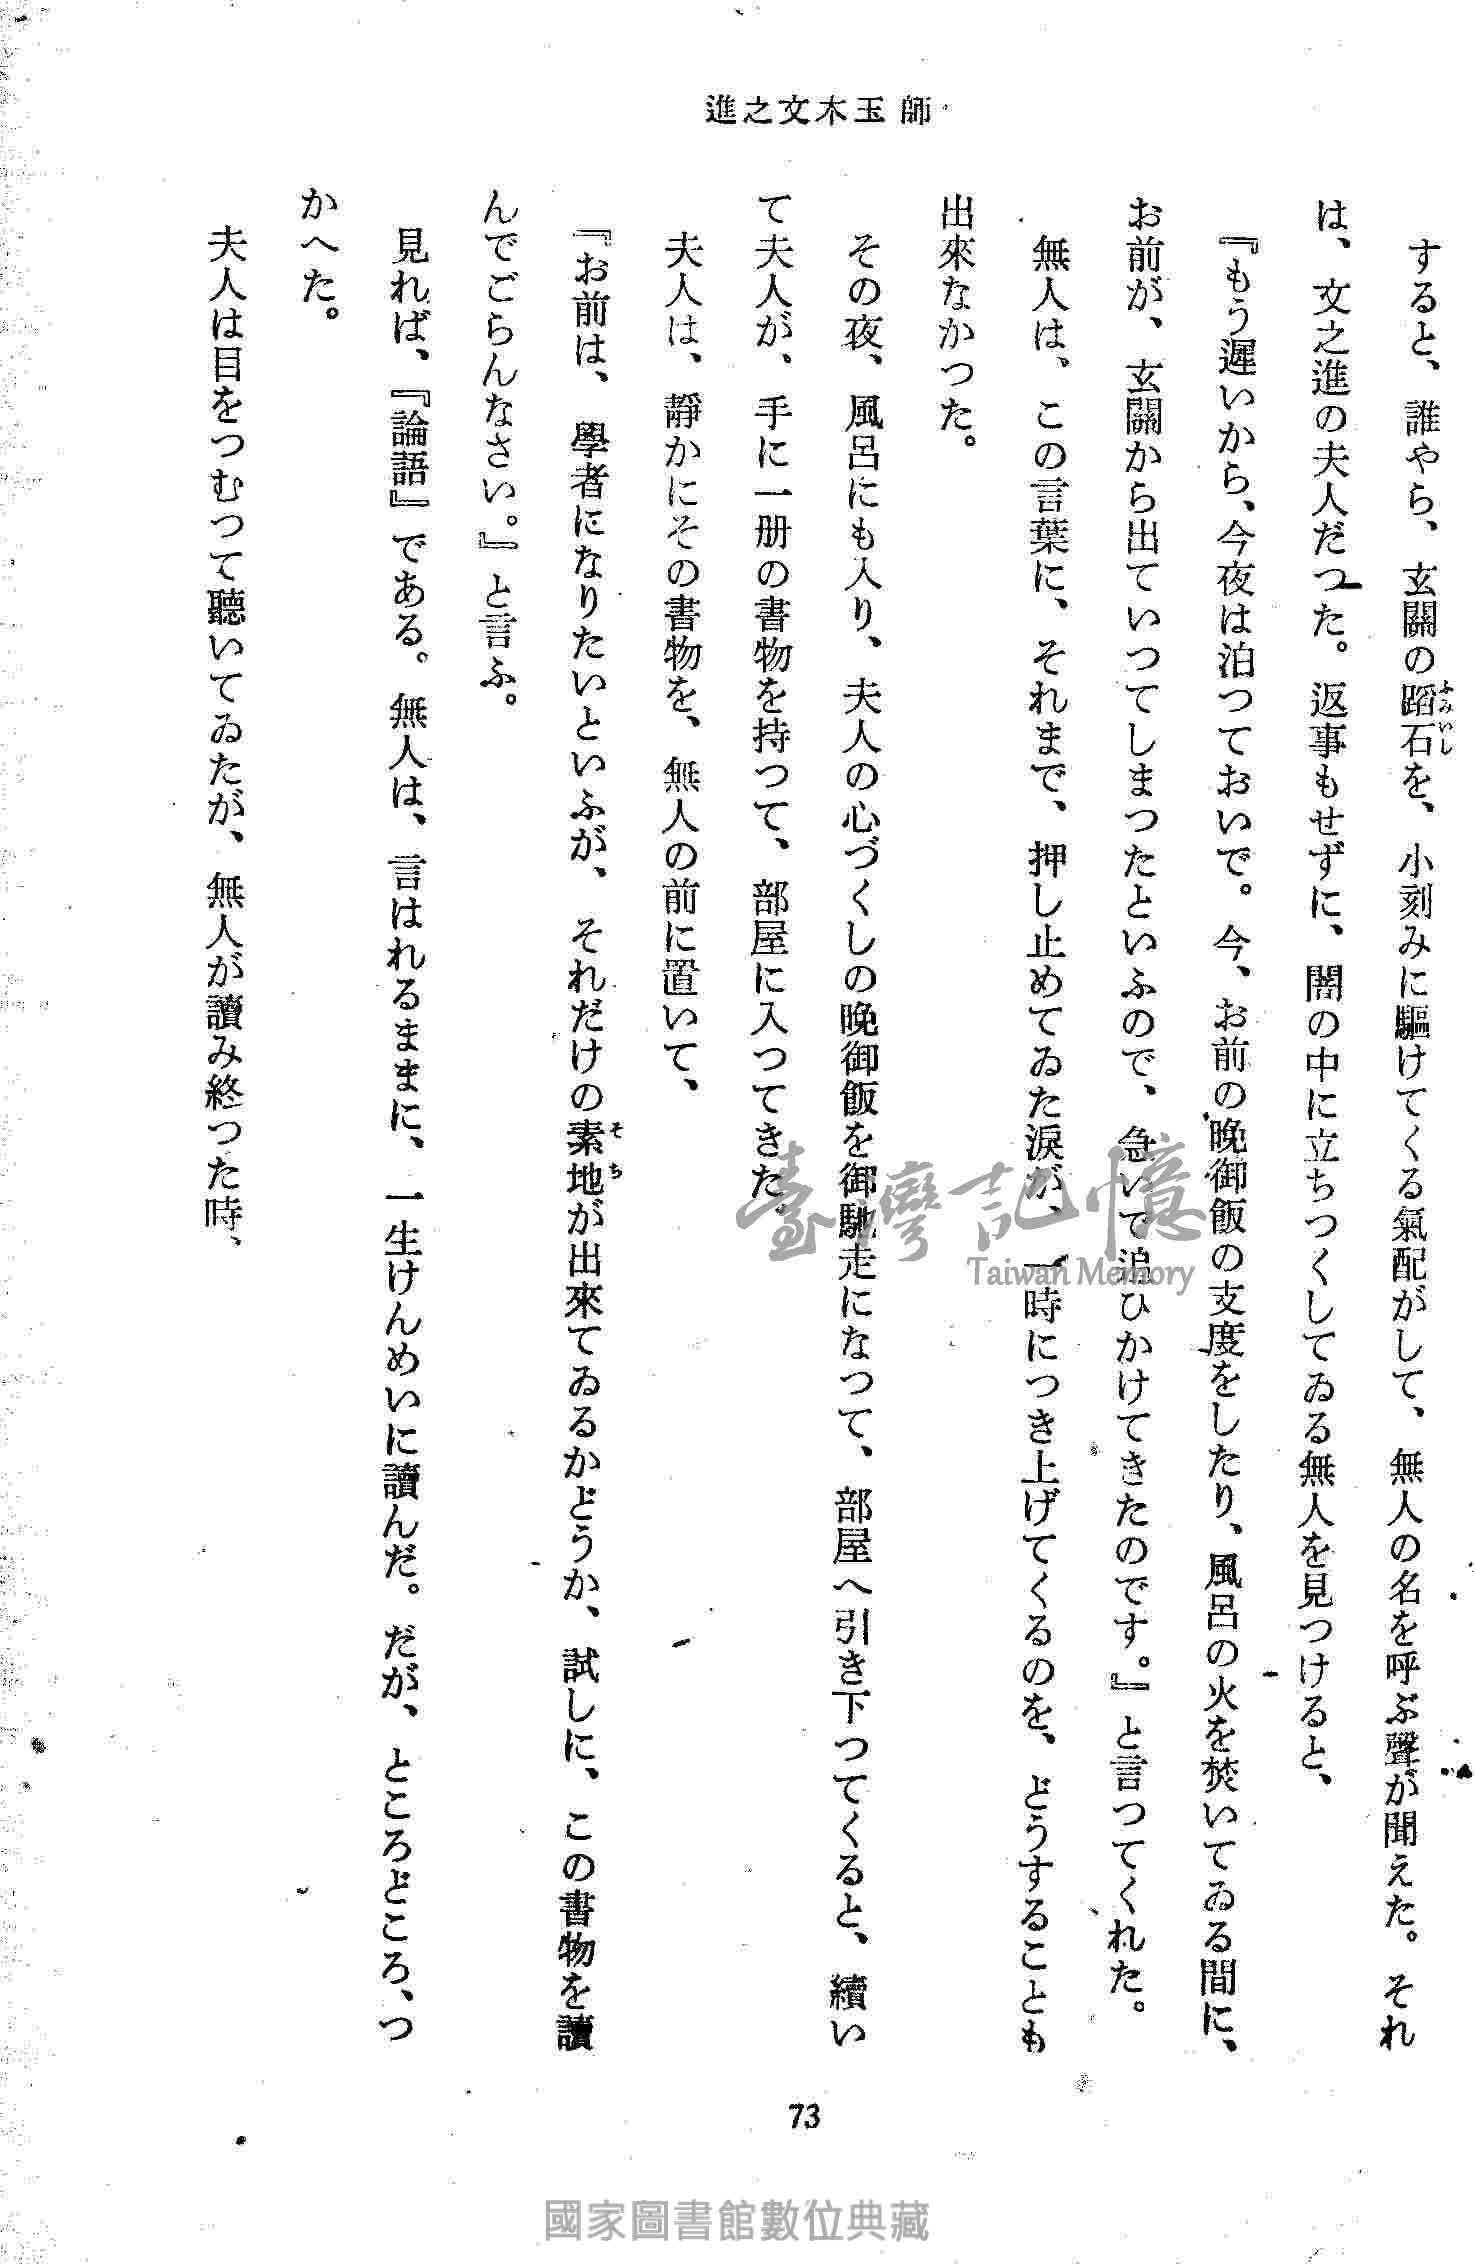 進之文木玉師
すると、誰やら、玄關の蹈石を、小刻みに驅けてくる氣配がして、無人の名を呼ぶ聲が聞えた。それ
ふみいし
は、文之進の夫人だつた。返事もせずに、闇の中に立ちつくしてゐる無人を見つけると、
『もう遲いから、今夜は泊つておいで。今、お前の晩御飯の支度をしたり、風呂の火を焚いてゐる間に、
お前が、玄關から出ていつてしまつたといふので、急いで追ひかけてきたのです。』と言つてくれた。
無人は、この言葉に、それまで、押し止めてゐた淚が、一時につき上げてくるのを、どうすることも
出來なかつた。
その夜、風呂にも入り、夫人の心づくしの晩御飯を御馳走になつて、部屋へ引き下つてくると、續い
て夫人が、手に一册の書物を持つて、部屋に入つてきた。
夫人は、靜かにその書物を、無人の前に置いて、
『お前は、學者になりたいといふが、それだけの素地が出來てゐるかどうか、試しに、この書物を讀
そち
んでごらんなさい。』と言ふ。
見れば、『論語』である。無人は、言はれるままに、一生けんめいに讀んだ。だが、ところどころ、つ
かへた。
夫人は目をつむつて聽いてゐたが、無人が讀み終つた時、
73
臺灣記憶
Taiwan Memory
國家圖書館數位典藏